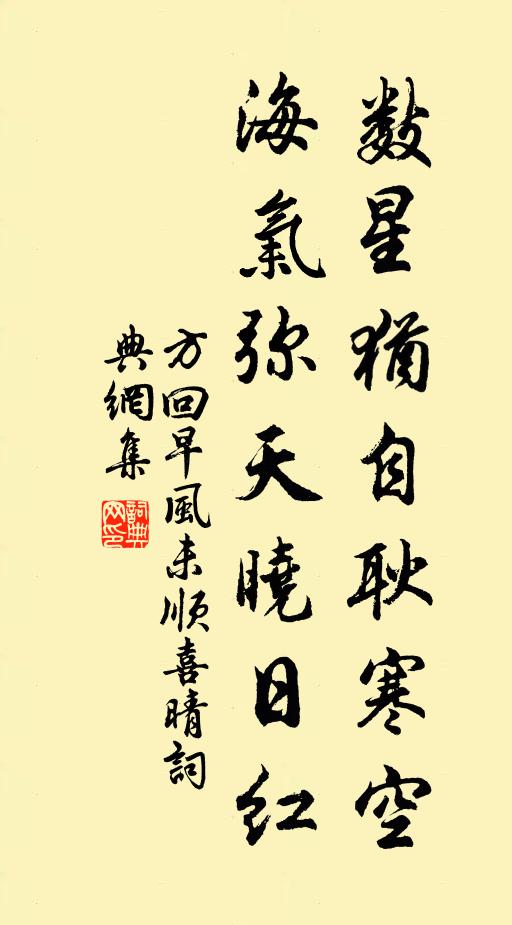 数星猶自耿寒空
海氣弥天曉日红
方回早風未順喜晴詞
典網集
詞典
网印